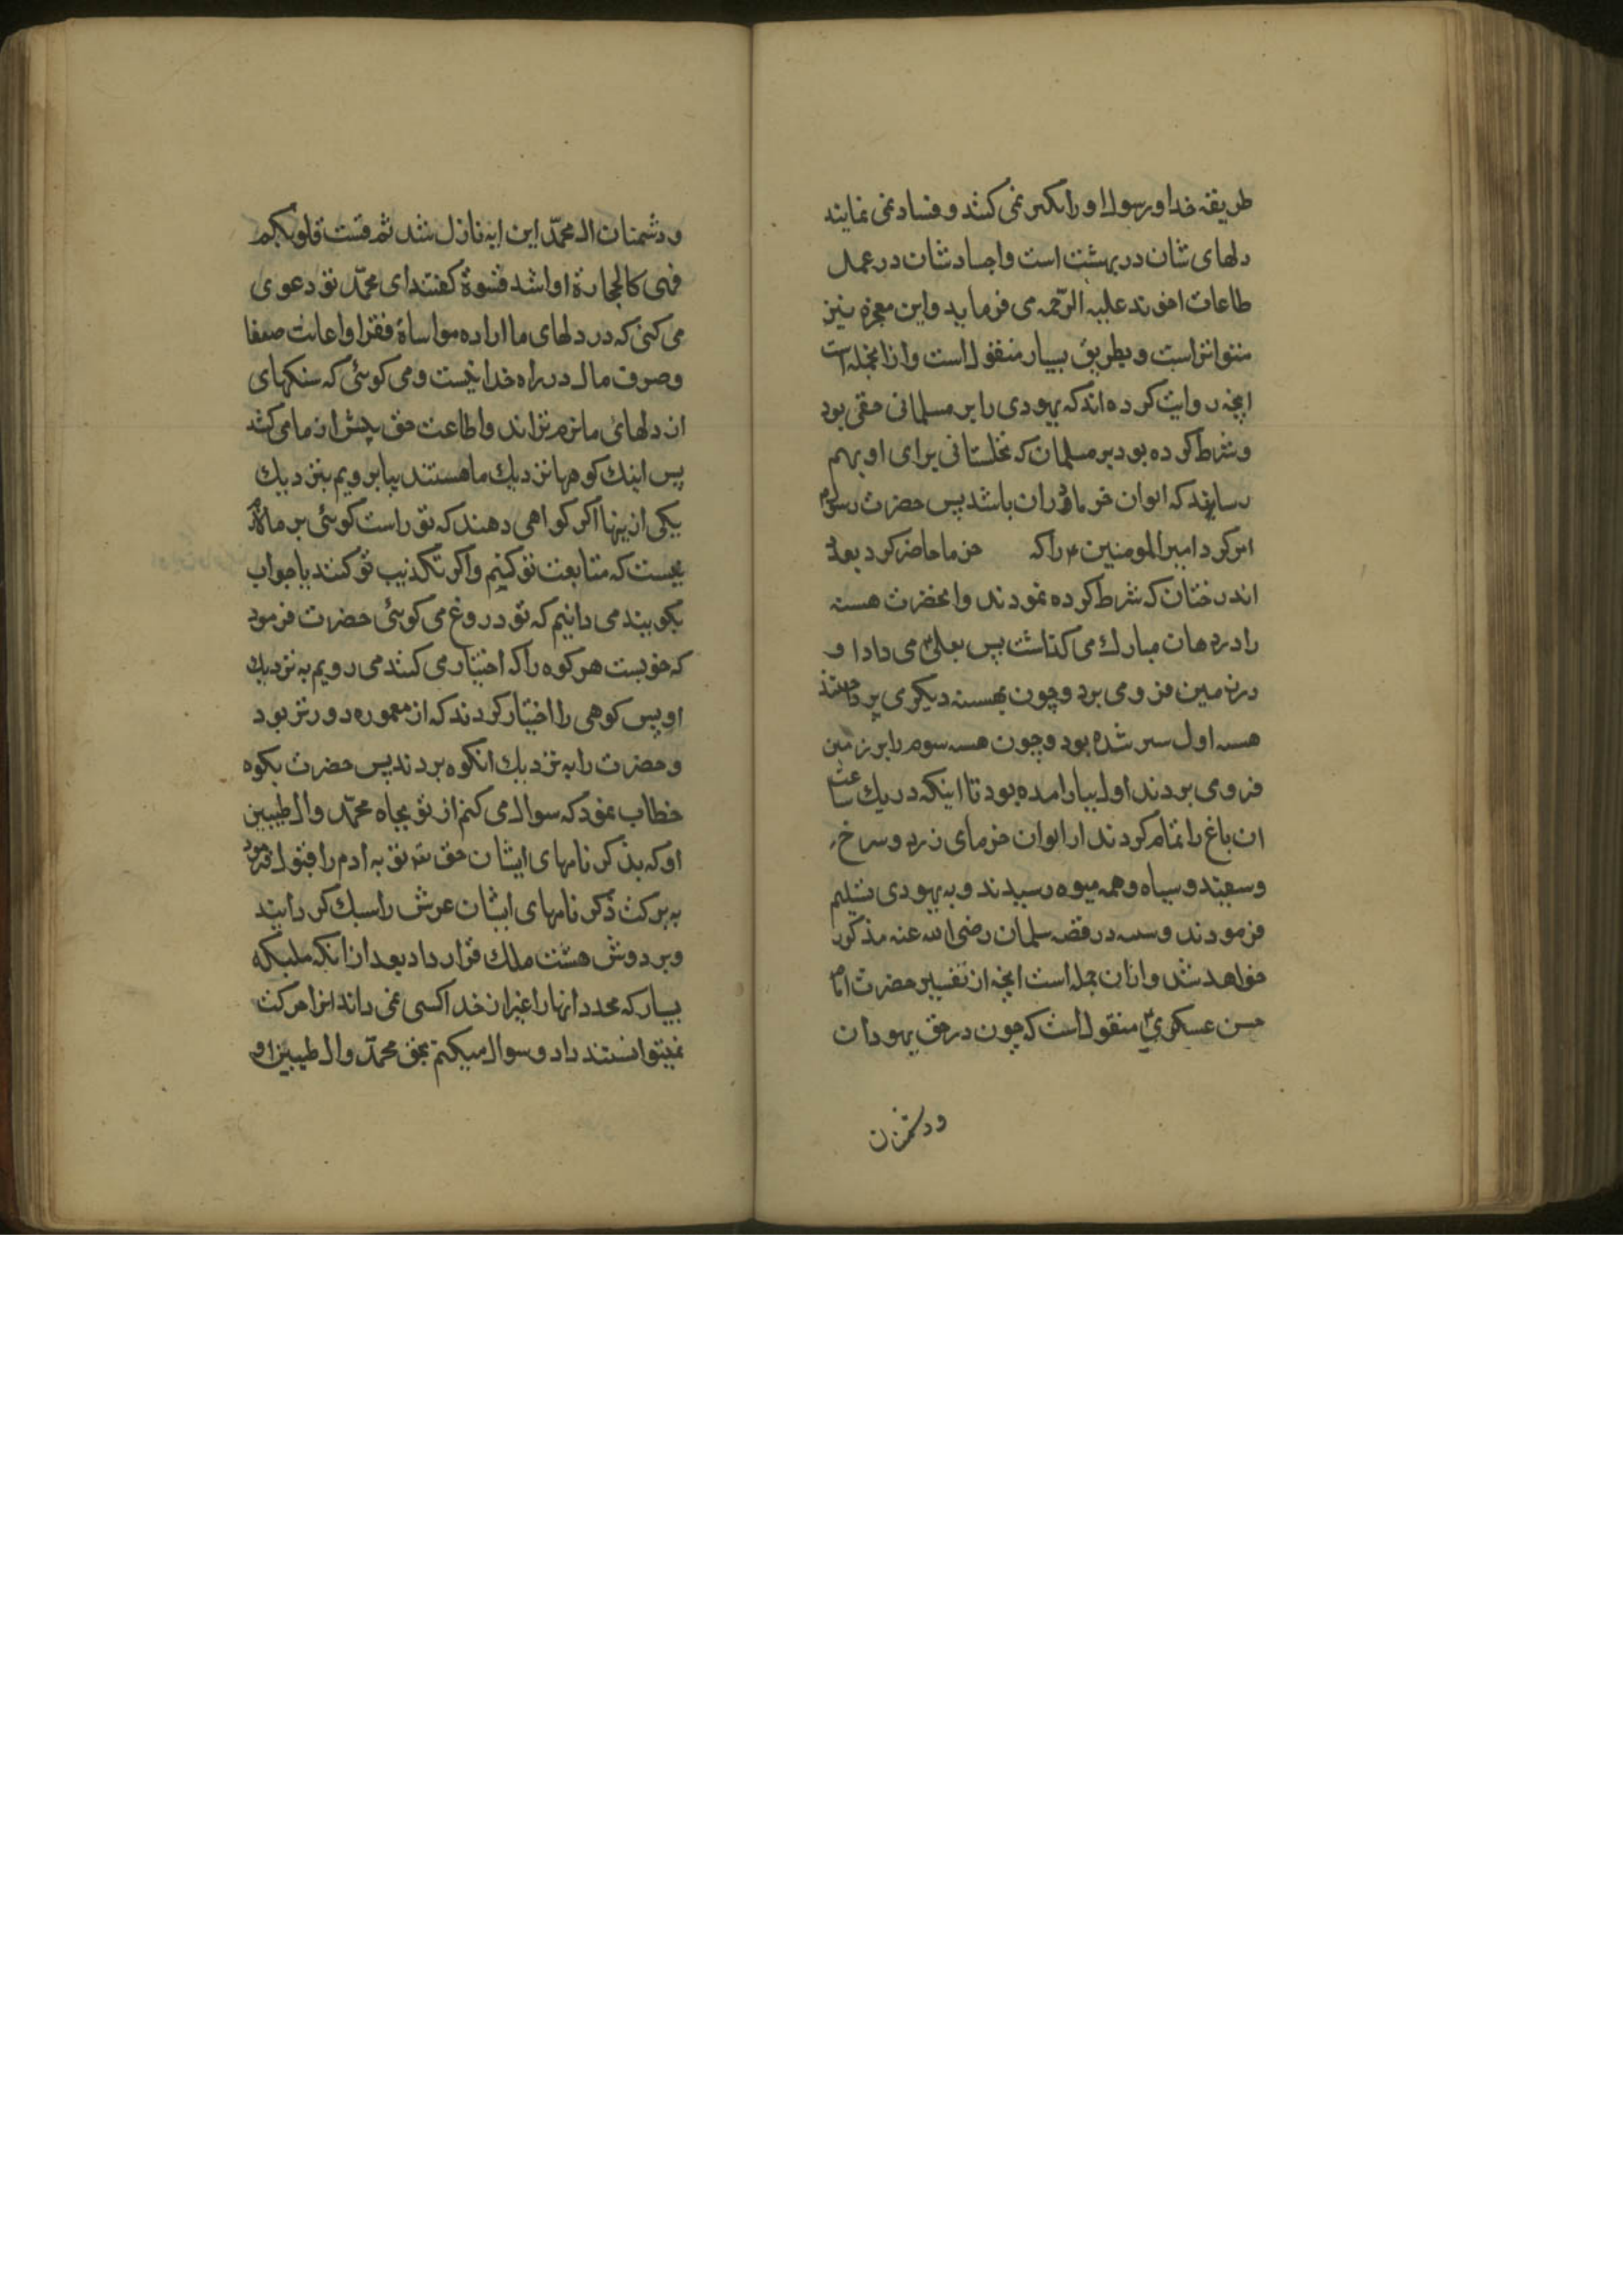 طریقه خدا و رسول او را تکبر نمی کنند و فساد نمی نمایند
دلهای شان در بهشت است و اجساد شان در عمل
طاعات اخوند علیه الرحمه می فرماید و این معجزه نیز
متواتر است و بطریق بسیار منقول است و از انجمله است
انچه روایت کرده اند که یهودی را بر مسلمانی حقی بود
و شرط کرده بود بر مسلمان که نخلستانی برای او بهم
رساند که الوان خرما دران باشد پس حضرت رسول
امر کرد امیر المومنین را که خرما حاضر کرد بعدد
اندرختان که شرط کرده نمودند و انحضرت هسته
را در دهان مبارک می کذاشت پس بعلی می داد او
در زمین فرو می برد و چون بهسته دیکر می پرداختند
هسته اول سبز شده بود و چون هسته سوم را بر زمین
فرو می بردند اول ببار امده بود تا اینکه در یک ساعت
ان باغ را تمام کردند از الوان خرمای زرد و سرخ
و سفید و سیاه و همه میوه رسیدند و به یهودی تسلیم
فرمودند و در قصه سلمان رضی الله عنه مذکور
خواهد شد و ازان جمله است انچه از تفسیر حضرت امام
حسن عسکری منقول است که چون در حق یهودان
ودشمنان
و دشمنان ال محمد این ایه نازل شد ثم قست قلوبکم
فهی کالحجارة او اشد قسوة کفتند ای محمد تو دعوی
می کنی که در دلهای ما اراده مواساة فقرا و اعانت ضعفا
و صرف مال در راه خدا نیست و می کوئی که سنکهای
از دلهای ما نرم تر اند و اطاعت حق بیش از ما می کنند
پس اینک کوهها نزدیک ما هستند بیا برویم بنزدیک
یکی از ینها اکر کواهی دهند که تو راست کوئی بر ما لازم
یست که متابعت تو کنیم و اکر تکذیب تو کنند یا جواب
نکویند می دانیم که تو دروغ می کوئی حضرت فرمود
که خوبست هر کوه را که اختیار می کنند می رویم به نزدیک
او پس کوهی را اختیار کردند که از معموره دورتر بود
و حضرت را به نزدیک انکوه بردند پس حضرت بکوه
خطاب نمود که سوال می کنم از تو بجاه محمد و ال طیبین
او که بذکر نامهای ایشان حق توبه ادم را قبول فرمود
به برکت ذکر نامهای ایشان عرش را سبک کردانید
و بر دوش هشت ملک قرار داد بعد از انکه ملیکه
بسیار که عدد انها را غیر از خدا کسی نمی داند انرا حرکت
نمیتوانستند داد و سوال میکنم بحق محمد و ال طیبین او